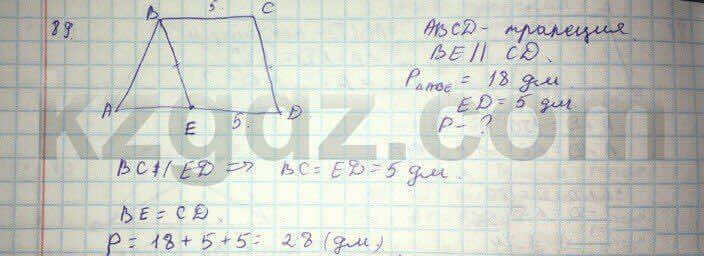 89.
B 5 C
A E 5 D
ABCD - трапеция
BE || CD.
P△ABE = 18 дм
ED = 5 дм
P - ?
kzgdz.com
BC || ED => BC = ED = 5 дм.
BE = CD.
P = 18 + 5 + 5 = 28 (дм)